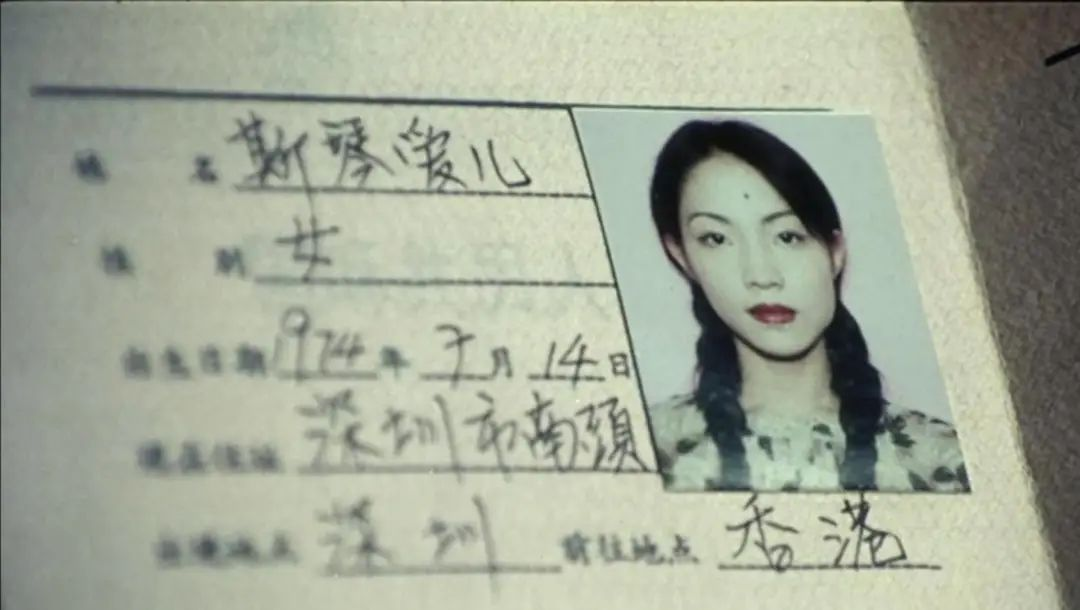 姓 名 斯琴爱儿
性 别 女
出生日期 1974 年 7 月 14 日
现在住址 深圳市南頭
出境地点 深圳 前往地点 香港